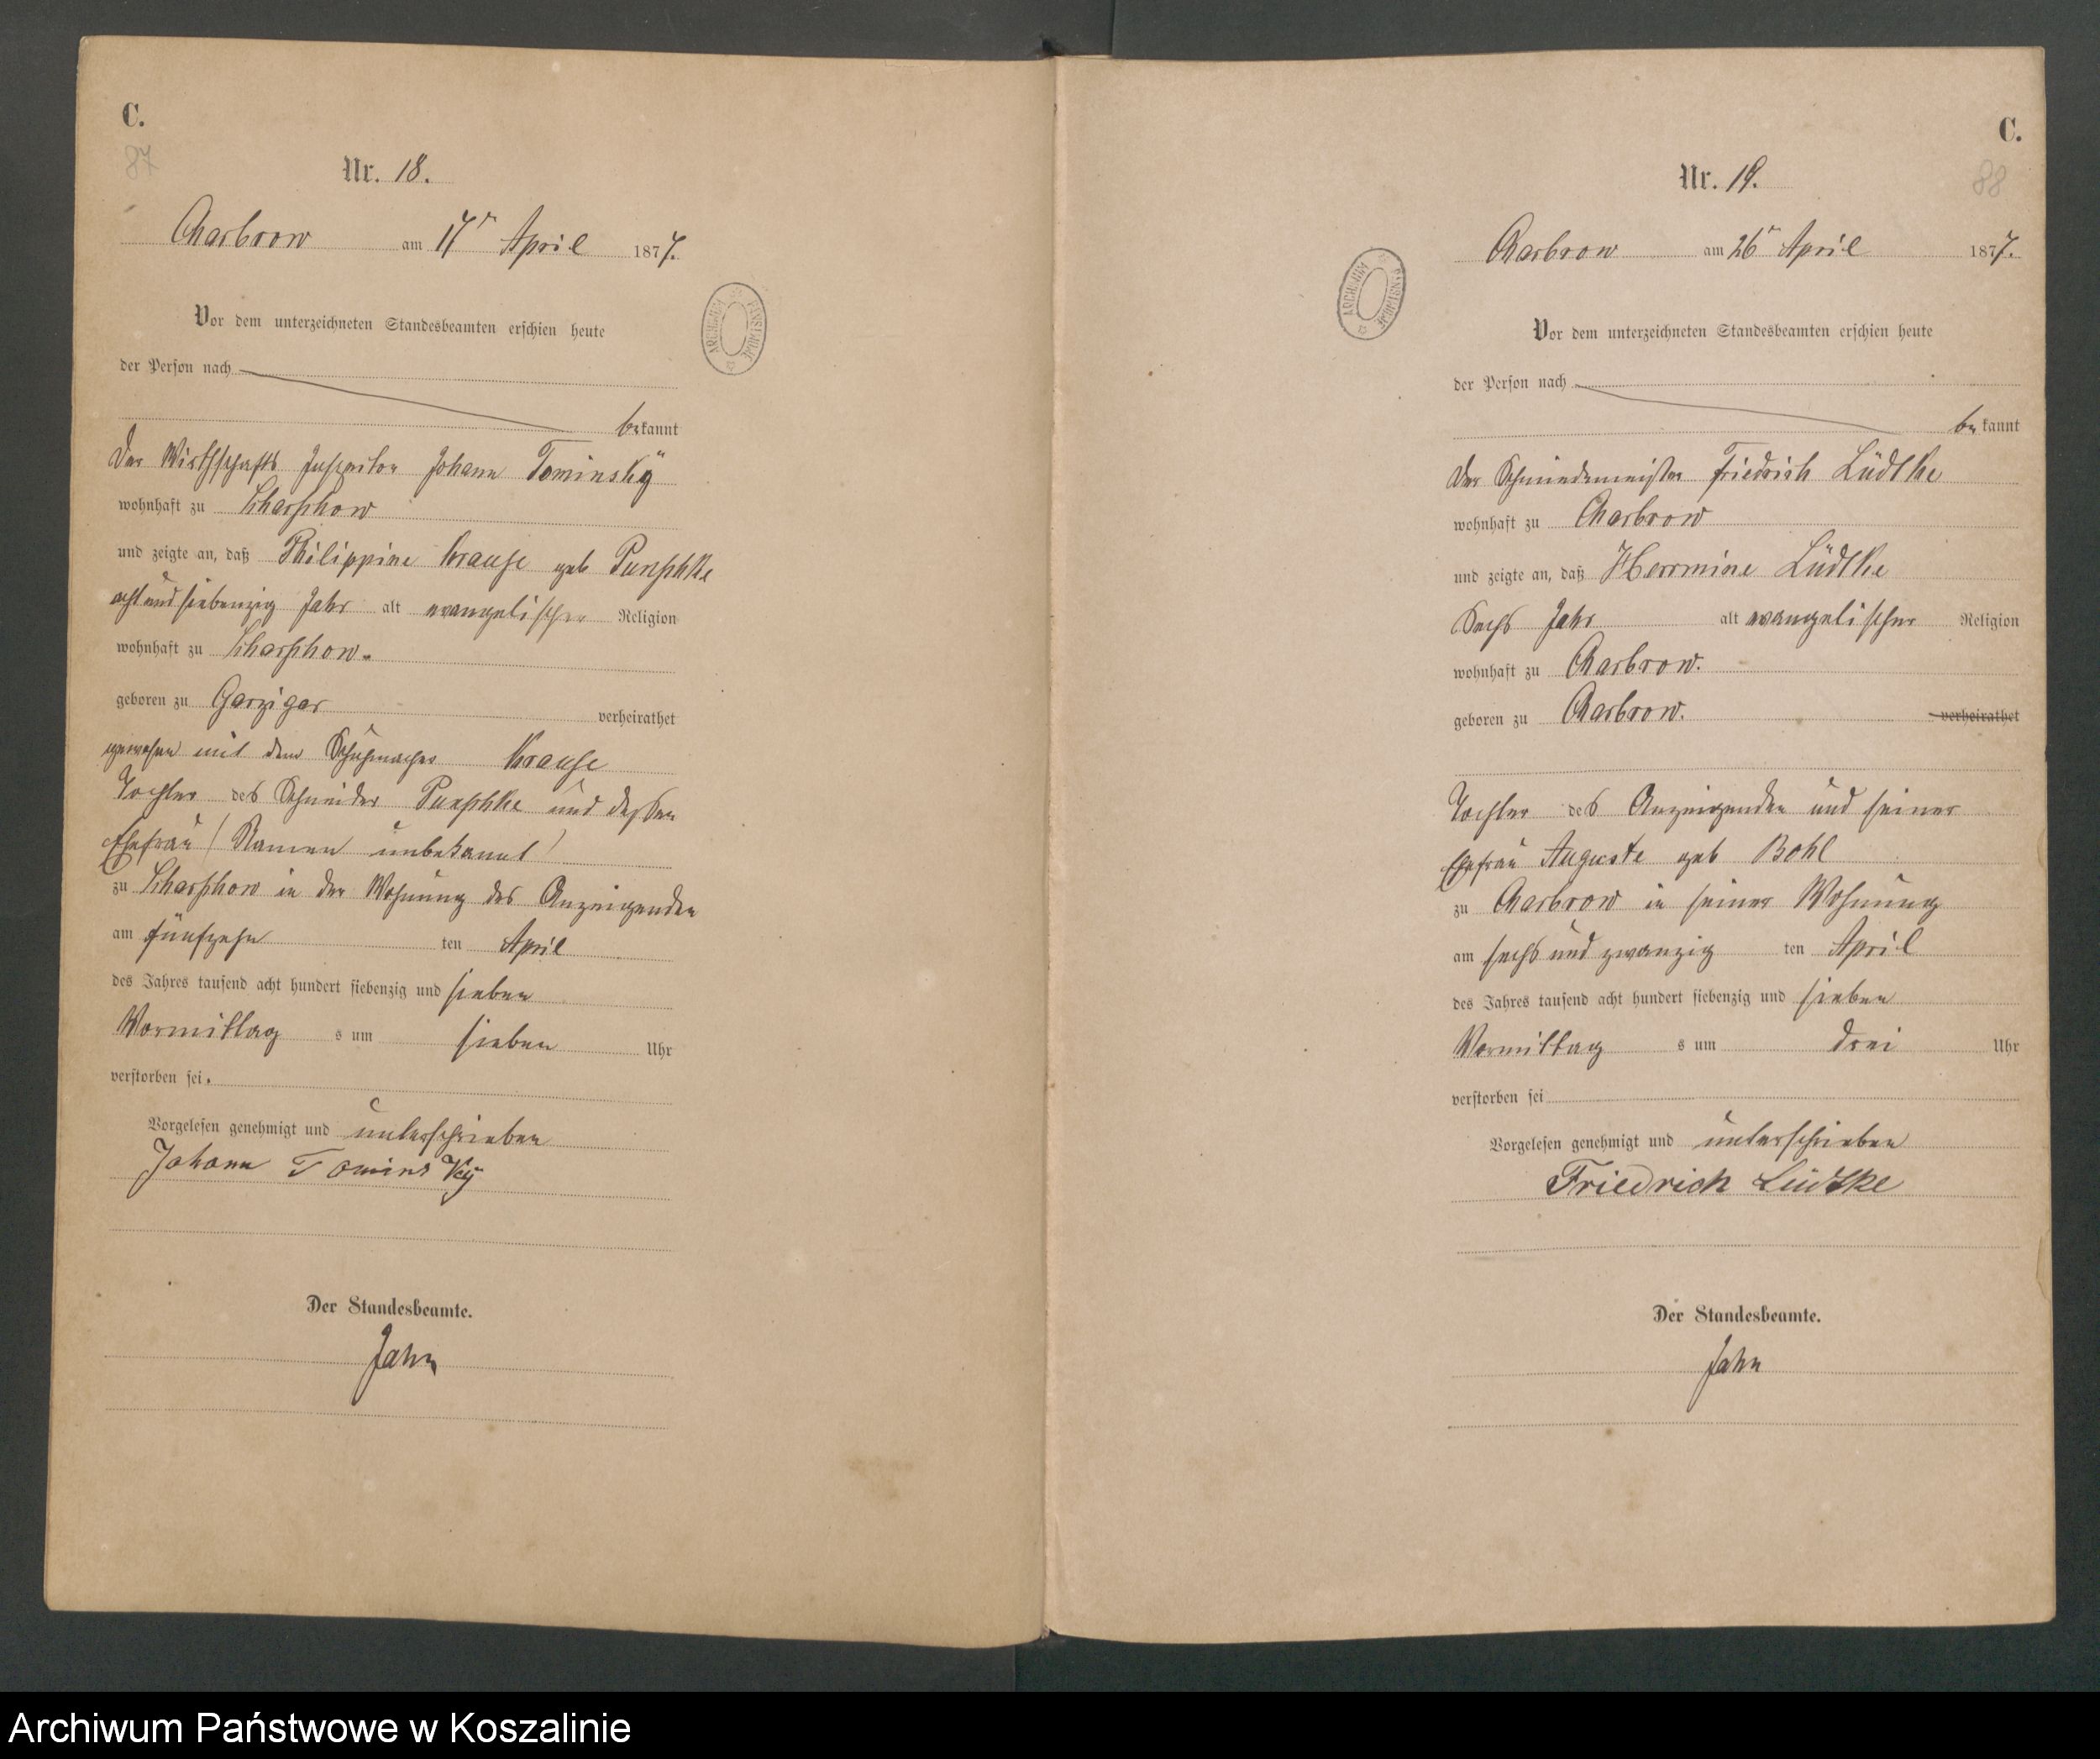 C.
87
Nr. 18.
Charbrow am 17n April 1877.
Vor dem unterzeichneten Standesbeamten erschien heute
der Person nach
bekannt
Der Wirthschafts Inspector Johann Tominsky
wohnhaft zu Scharschow
und zeigte an, daß Philippine Krause geb
acht und siebenzig Jahr alt evangelischer Religion
wohnhaft zu Scharschow.
geboren zu Garzigar verheirathet
gewesen mit dem Schuhmacher Krause
Tochter des Schneider und dessen
Ehefrau (Namen unbekannt)
zu Scharschow in der Wohnung des Anzeigenden
am fünfzehn ten April
des Jahres tausend acht hundert siebenzig und sieben
Vormittag s um sieben Uhr
verstorben sei.
Vorgelesen genehmigt und unterschrieben
Johann Tominsky
Der Standesbeamte.
Jahn
ARCHIWUM PAŃSTWOWE
C.
88
Nr. 19.
Charbrow am 26n April 1877.
Vor dem unterzeichneten Standesbeamten erschien heute
der Person nach
bekannt
Der Schmiedemeister Friedrich Lüdtke
wohnhaft zu Charbrow
und zeigte an, daß Herrmine Lüdtke
Sechs Jahr alt evangelischer Religion
wohnhaft zu Charbrow.
geboren zu Charbrow. verheirathet
Tochter des Anzeigenden und seiner
Ehefrau Auguste geb Bohl
zu Charbrow in seiner Wohnung
am sechs und zwanzig ten April
des Jahres tausend acht hundert siebenzig und sieben
Vormittag s um drei Uhr
verstorben sei
Vorgelesen genehmigt und unterschrieben
Friedrich Lüdtke
Der Standesbeamte.
Jahn
ARCHIWUM PAŃSTWOWE
Archiwum Państwowe w Koszalinie